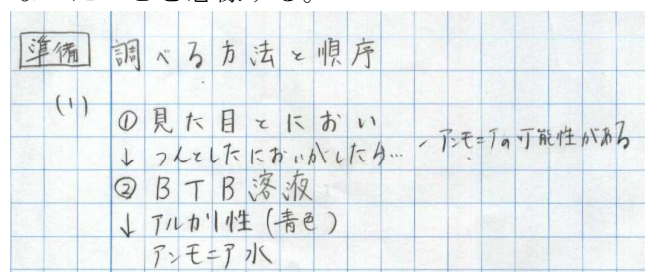 準備 調べる方法と順序
(1)
① 見た目とにおい
↓ つんとしたにおいがしたら… - アンモニアの可能性がある
② BTB溶液
↓ アルカリ性(青色)
アンモニア水